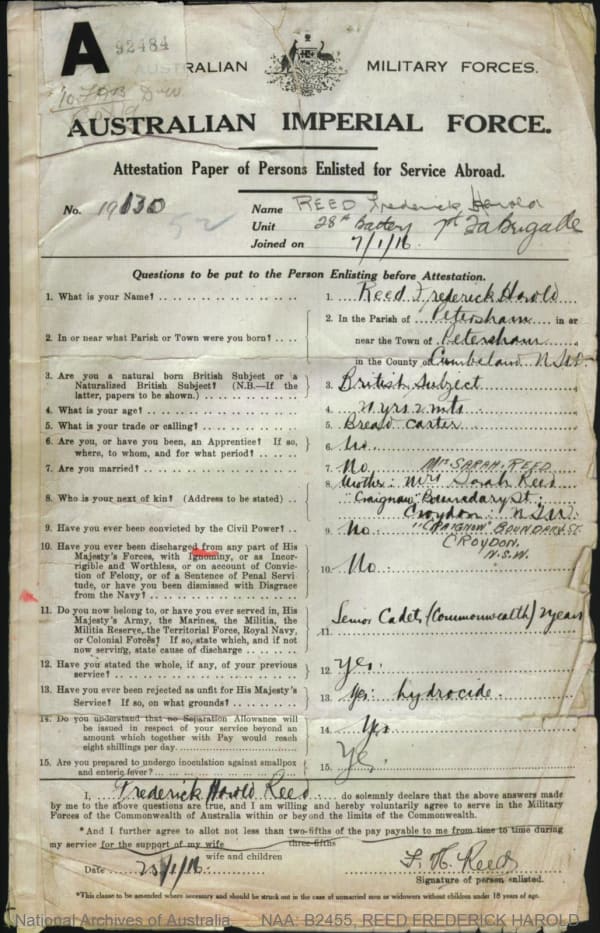 A 92484
AUSTRALIAN MILITARY FORCES.
AUSTRALIAN IMPERIAL FORCE.
Attestation Paper of Persons Enlisted for Service Abroad.
No. 19130 52 Name REED Frederick Harold
Unit 28th Battery 7th Fa Brigade
Joined on 7/1/16.
Questions to be put to the Person Enlisting before Attestation.
1. What is your Name? 1. Reed Frederick Harold
2. In or near what Parish or Town were you born? 2. In the Parish of Petersham in or
near the Town of Petersham
in the County of Cumberland N.S.W.
3. Are you a natural born British Subject or a
Naturalized British Subject? (N.B.—If the
latter, papers to be shown.) 3. British Subject
4. What is your age? 4. yrs 2 mts
5. What is your trade or calling? 5. Bread Carter
6. Are you, or have you been, an Apprentice? If so,
where, to whom, and for what period? 6. No.
7. Are you married? 7. No. Mrs SARAH REED
8. Who is your next of kin? (Address to be stated) 8. Mother: Mrs Sarah Reed
"Craignaw" Boundary St:
Croydon: N.S.W.
9. Have you ever been convicted by the Civil Power? 9. No "CRAIGNOW" BOUNDARY ST.
CROYDON.
N.S.W.
10. Have you ever been discharged from any part of His
Majesty's Forces, with Ignominy, or as Incor-
rigible and Worthless, or on account of Convic-
tion of Felony, or of a Sentence of Penal Servi-
tude, or have you been dismissed with Disgrace
from the Navy? 10. No
11. Do you now belong to, or have you ever served in, His
Majesty's Army, the Marines, the Militia, the
Militia Reserve, the Territorial Force, Royal Navy,
or Colonial Forces? If so, state which, and if not
now serving, state cause of discharge 11. Senior Cadets (Commonwealth) 2 years
12. Have you stated the whole, if any, of your previous
service? 12. Yes.
13. Have you ever been rejected as unfit for His Majesty's
Service? If so, on what grounds? 13. Yes: hydrocide.
14. Do you understand that no Separation Allowance will
be issued in respect of your service beyond an
amount which together with Pay would reach
eight shillings per day 14. Yes
15. Are you prepared to undergo inoculation against smallpox
and enteric fever? 15. Yes
I, Frederick Harold Reed do solemnly declare that the above answers made
by me to the above questions are true, and I am willing and hereby voluntarily agree to serve in the Military
Forces of the Commonwealth of Australia within or beyond the limits of the Commonwealth.
*And I further agree to allot not less than two-fifths of the pay payable to me from time to time during
three-fifths
my service for the support of my wife
wife and children
Date /1/16 F. H. Reed
Signature of person enlisted.
*This clause to be amended where necessary and should be struck out in the case of unmarried men or widowers without children under 18 years of age.
National Archives of Australia NAA: B2455, REED FREDERICK HAROLD